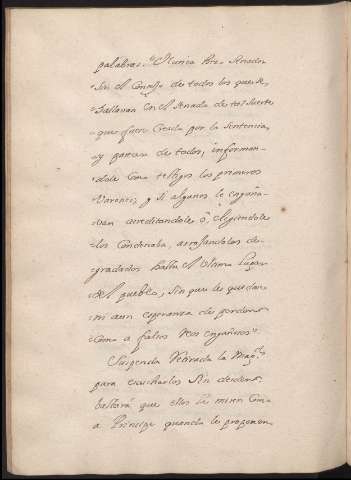 palabras: Nunca
sin el Consejo de todos los que se
hallavan en el Senado de tal suerte
que fuese Creada por la Sentencia,
y parecer de todos, informan-
dole como testigos los primeros
Varones, y si algunos le engaña-
van acreditandole ó, eligiendole
los Condenaba, arrojandolos de-
gradados hasta el ultimo Lugar
del pueblo, sin que les quedase
ni aun esperanza de perdon
Como a falsos
Retirada la Mag.
para escucharlos Sin
bastará que ellos le miren Como
a Principe quando le proponen